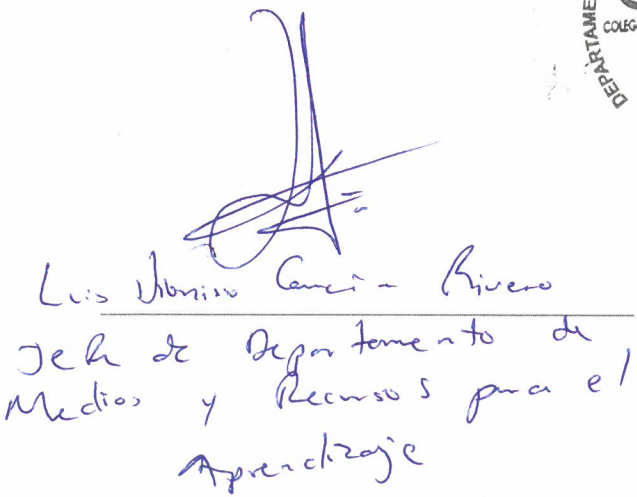 DEPARTAME
COLEG
Luis Dionisio Rivero
Jefe de Departamento de
Medios y Recursos para el
Aprendizaje